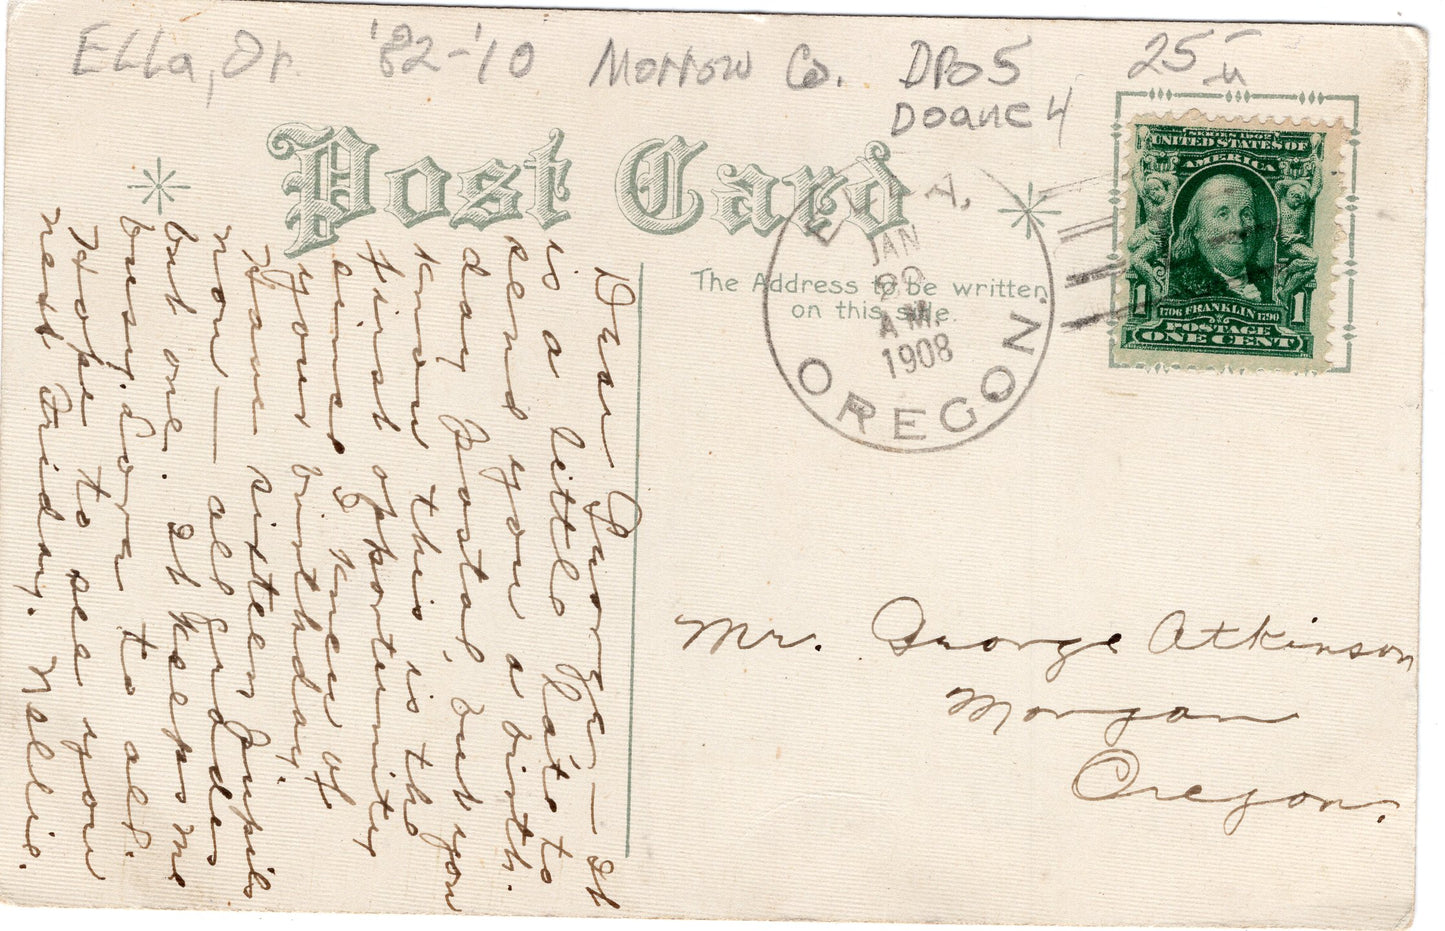 Ella, Or. '82-'10 Morrow Co. DPO5 25
Doane 4
Post Card
The Address to be written
on this side.
ELLA,
JAN
20
A.M.
1908
OREGON
SERIES 1902
UNITED STATES OF
AMERICA
1 1
1706 FRANKLIN 1790
POSTAGE
ONE CENT
Dear George — It
is a little late to
send you a birth
day postal, but you
know this is the
first opportunity
since I knew of
your birthday.
Have sixteen pupils
now — all grades
but one. It keeps me
busy. Love to all.
Hope to see you
next Friday. Nellie.
Mr. George Atkinson
Morgan
Oregon.